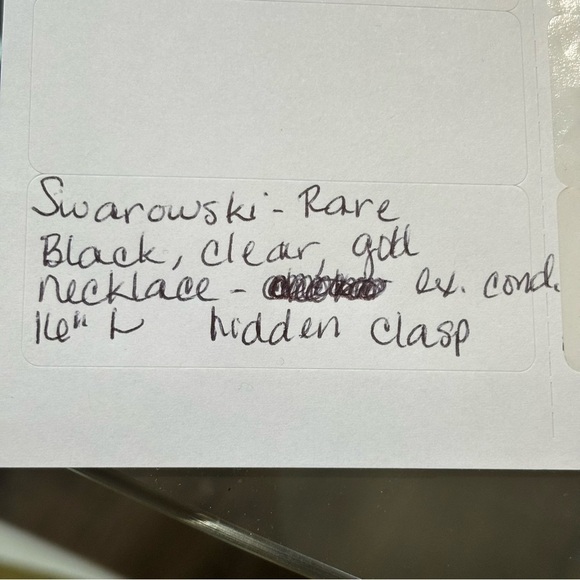 Swarowski - Rare
Black, clear, gold
necklace - ex. cond.
16" L hidden clasp